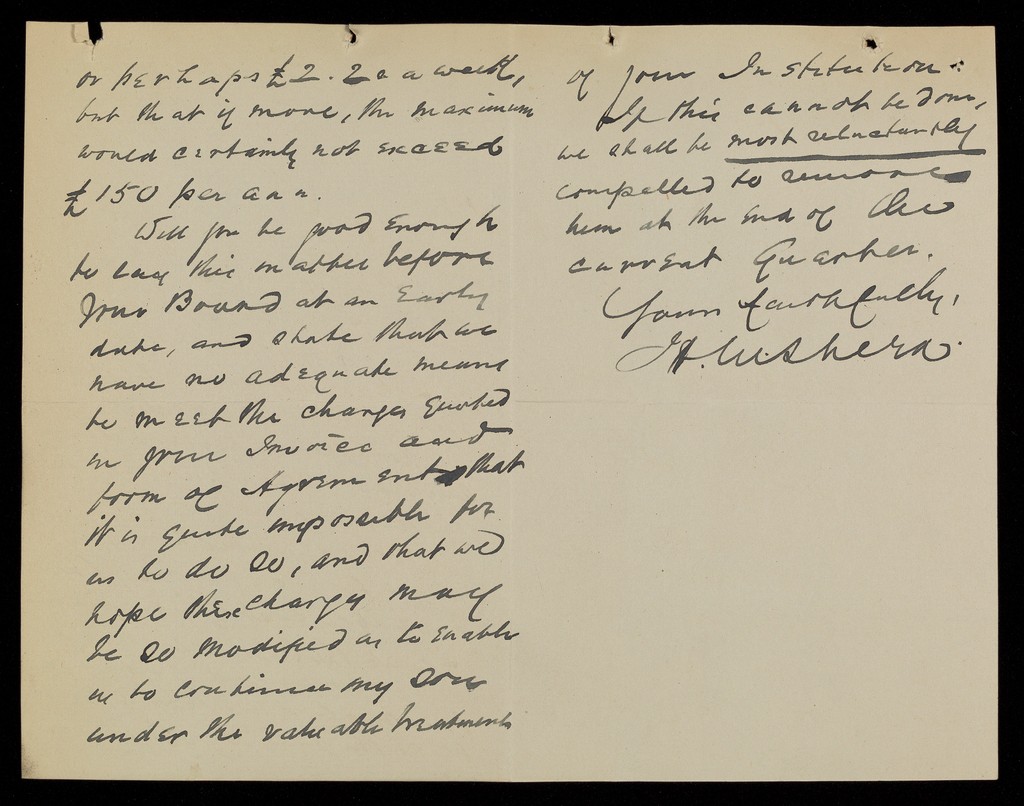 or perhaps £2.2s a week,
but that if more, the maximum
would certainly not exceed
£150 per ann.
Will you be good enough
to lay this matter before
your Board at an Early
date, and state that we
have no adequate means
to meet the charges quoted
in your Invoice and
form of Agreement, that
it is quite impossible for
us to do so, and that we
hope these charges may
be so modified as to enable
us to continue my son
under the valuable treatment
of your Institution:
If this cannot be done,
we shall be most reluctantly
compelled to remove
him at the end of the
current Quarter.
Yours faithfully,